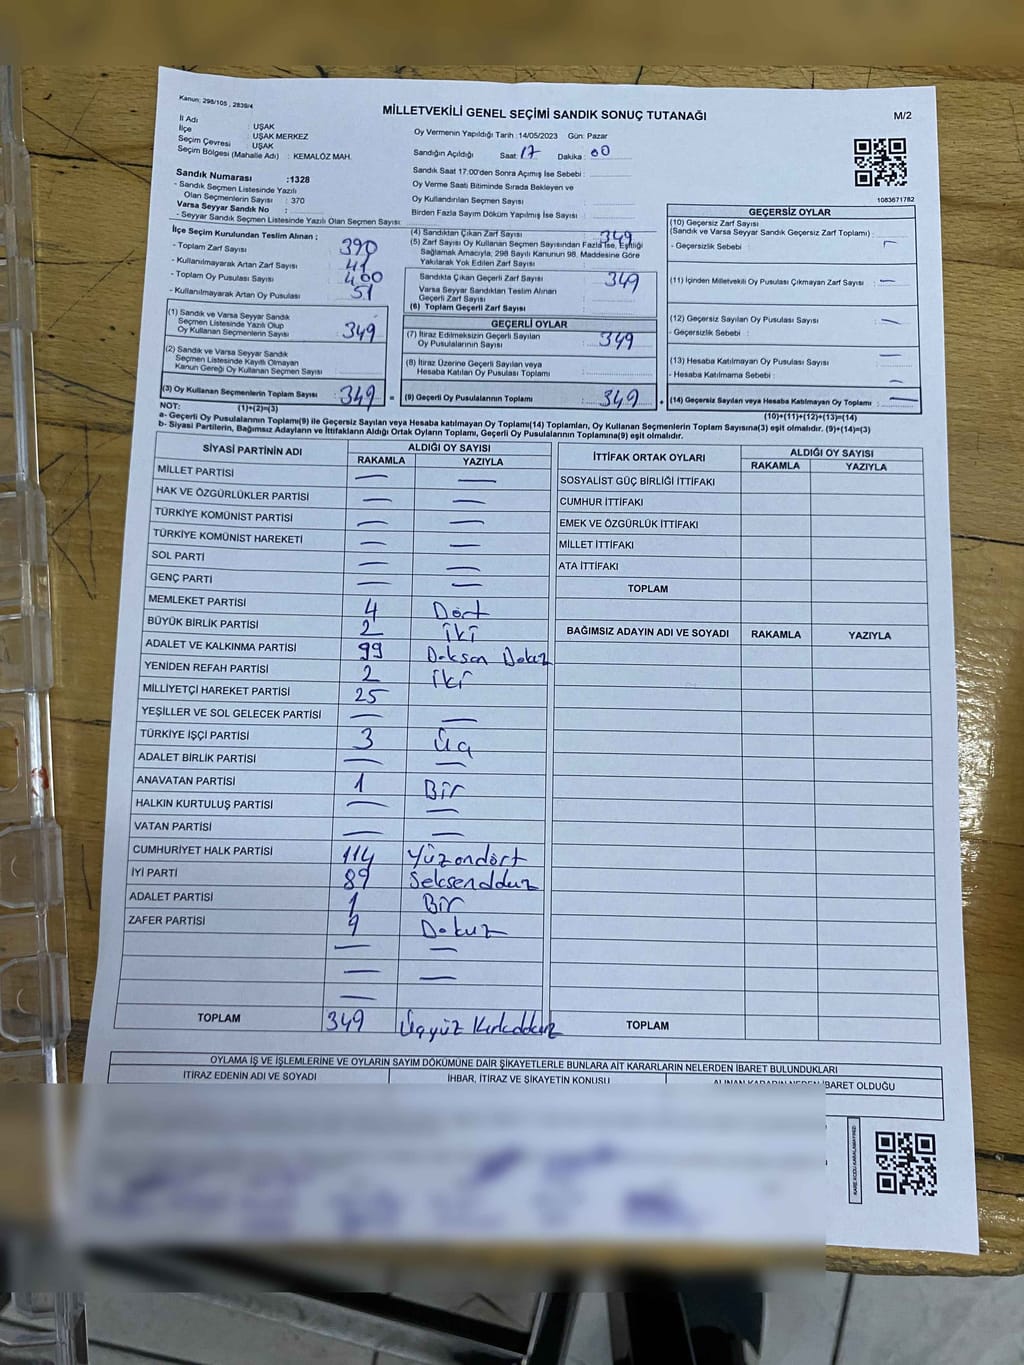 Kanun; 298/105 , 2839/4
MİLLETVEKİLİ GENEL SEÇİMİ SANDIK SONUÇ TUTANAĞI
M/2
İl Adı : UŞAK
İlçe : UŞAK MERKEZ
Seçim Çevresi : UŞAK
Seçim Bölgesi (Mahalle Adı) : KEMALÖZ MAH.
Oy Vermenin Yapıldığı Tarih : 14/05/2023 Gün: Pazar
Sandığın Açıldığı Saat: 17 Dakika : 00
Sandık Saat 17.00'den Sonra Açımış İse Sebebi :
Oy Verme Saati Bitiminde Sırada Bekleyen ve
Oy Kullandırılan Seçmen Sayısı
Birden Fazla Sayım Döküm Yapılmış İse Sayısı :
1083671782
Sandık Numarası :1328
- Sandık Seçmen Listesinde Yazılı
Olan Seçmenlerin Sayısı : 370
Varsa Seyyar Sandık No :
- Seyyar Sandık Listesinde Yazılı Olan Seçmen Sayısı:
İlçe Seçim Kurulundan Teslim Alınan ;
- Toplam Zarf Sayısı 390
- Kullanılmayarak Artan Zarf Sayısı 41
- Toplam Oy Pusulası Sayısı 400
- Kullanılmayarak Artan Oy Pusulası 51
(1) Sandık ve Varsa Seyyar Sandık
Seçmen Listesinde Yazılı Olup
Oy Kullanan Seçmenlerin Sayısı 349
(2) Sandık ve Varsa Seyyar Sandık
Seçmen Listesinde Kayıtlı Olmayan
Kanun Gereği Oy Kullanan Seçmen Sayısı
(3) Oy Kullanan Seçmenlerin Toplam Sayısı 349 =
(1)+(2)=(3)
(4) Sandıktan Çıkan Zarf Sayısı 349
(5) Zarf Sayısı Oy Kullanan Seçmen Sayısından Fazla İse, Eşitliği
Sağlamak Amacıyla, 298 Sayılı Kanunun 98. Maddesine Göre
Yakılarak Yok Edilen Zarf Sayısı
Sandıkta Çıkan Geçerli Zarf Sayısı 349
Varsa Seyyar Sandıktan Teslim Alınan
Geçerli Zarf Sayısı
(6) Toplam Geçerli Zarf Sayısı
GEÇERLİ OYLAR
(7) İtiraz Edilmeksizin Geçerli Sayılan
Oy Pusulalarının Sayısı 349
(8) İtiraz Üzerine Geçerli Sayılan veya
Hesaba Katılan Oy Pusulası Toplamı
(9) Geçerli Oy Pusulalarının Toplamı 349 +
GEÇERSİZ OYLAR
(10) Geçersiz Zarf Sayısı
(Sandık ve Varsa Seyyar Sandık Geçersiz Zarf Toplamı) :
- Geçersizlik Sebebi :
(11) İçinden Milletvekili Oy Pusulası Çıkmayan Zarf Sayısı : —
(12) Geçersiz Sayılan Oy Pusulası Sayısı : —
- Geçersizlik Sebebi :
(13) Hesaba Katılmayan Oy Pusulası Sayısı —
- Hesaba Katılmama Sebebi : —
(14) Geçersiz Sayılan veya Hesaba Katılmayan Oy Toplamı : —
(10)+(11)+(12)+(13)=(14)
NOT:
a- Geçerli Oy Pusulalarının Toplamı(9) ile Geçersiz Sayılan veya Hesaba Katılmayan Oy Toplamı(14) Toplamları, Oy Kullanan Seçmenlerin Toplam Sayısına(3) eşit olmalıdır. (9)+(14)=(3)
b- Siyasi Partilerin, Bağımsız Adayların ve İttifakların Aldığı Ortak Oyların Toplamı, Geçerli Oy Pusulalarının Toplamına(9) eşit olmalıdır.
SİYASİ PARTİNİN ADI ALDIĞI OY SAYISI
RAKAMLA YAZIYLA
MİLLET PARTİSİ — —
HAK VE ÖZGÜRLÜKLER PARTİSİ — —
TÜRKİYE KOMÜNİST PARTİSİ — —
TÜRKİYE KOMÜNİST HAREKETİ — —
SOL PARTİ — —
GENÇ PARTİ — —
MEMLEKET PARTİSİ 4 Dört
BÜYÜK BİRLİK PARTİSİ 2 İki
ADALET VE KALKINMA PARTİSİ 99 Doksan Dokuz
YENİDEN REFAH PARTİSİ 2 İki
MİLLİYETÇİ HAREKET PARTİSİ 25
YEŞİLLER VE SOL GELECEK PARTİSİ — —
TÜRKİYE İŞÇİ PARTİSİ 3 Üç
ADALET BİRLİK PARTİSİ — —
ANAVATAN PARTİSİ 1 Bir
HALKIN KURTULUŞ PARTİSİ — —
VATAN PARTİSİ — —
CUMHURİYET HALK PARTİSİ 114 Yüzondört
İYİ PARTİ 89
ADALET PARTİSİ 1 Bir
ZAFER PARTİSİ 9 Dokuz
— —
— —
—
TOPLAM 349
İTTİFAK ORTAK OYLARI ALDIĞI OY SAYISI
RAKAMLA YAZIYLA
SOSYALİST GÜÇ BİRLİĞİ İTTİFAKI
CUMHUR İTTİFAKI
EMEK VE ÖZGÜRLÜK İTTİFAKI
MİLLET İTTİFAKI
ATA İTTİFAKI
TOPLAM
BAĞIMSIZ ADAYIN ADI VE SOYADI RAKAMLA YAZIYLA
TOPLAM
OYLAMA İŞ VE İŞLEMLERİNE VE OYLARIN SAYIM DÖKÜMÜNE DAİR ŞİKAYETLERLE BUNLARA AİT KARARLARIN NELERDEN İBARET BULUNDUKLARI
İTİRAZ EDENİN ADI VE SOYADI
İHBAR, İTİRAZ VE ŞİKAYETİN KONUSU
ALINAN KARARIN NEDEN İBARET OLDUĞU